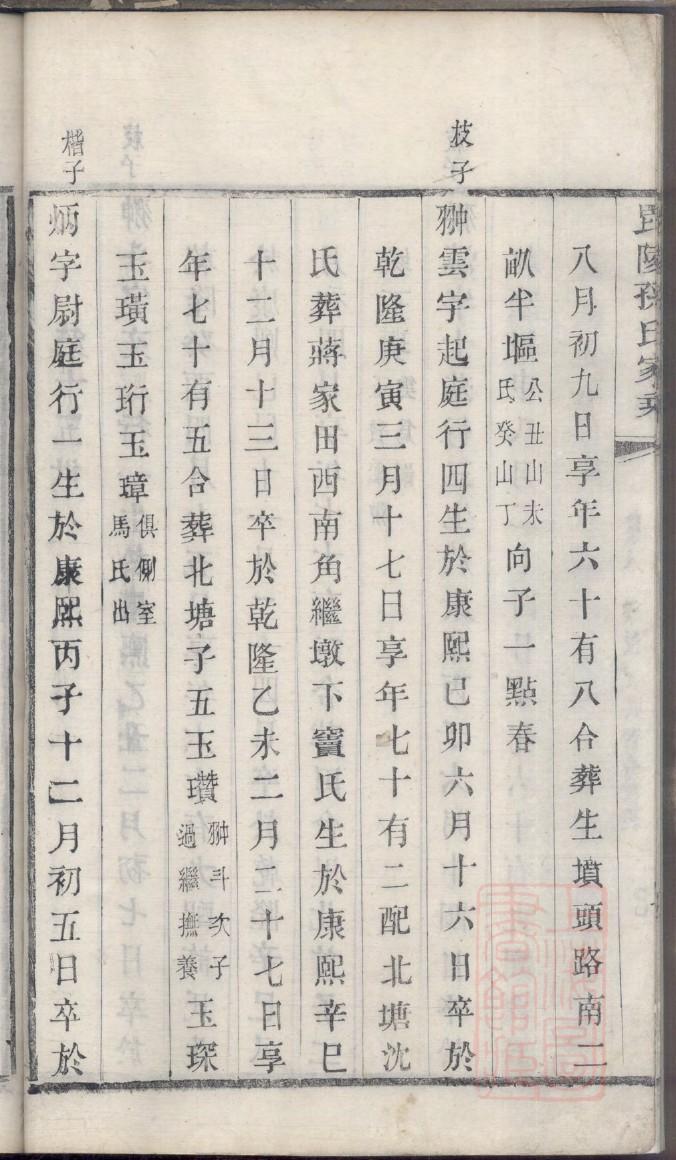 毘陵孫氏家乘
八月初九日享年六十有八合葬生墳頭路南二
畝半塸公丑山未氏癸山丁向子一點春
枝子
翀雲字起庭行四生於康熙己卯六月十六日卒於
乾隆庚寅三月十七日享年七十有二配北塘沈
氏葬蔣家田西南角繼墩下竇氏生於康熙辛巳
十二月十三日卒於乾隆乙未二月二十七日享
年七十有五合葬北塘子五玉瓚翀斗次子過繼撫養玉琛
玉璜玉珩玉璋俱側室馬氏出
楷子
炳字尉庭行一生於康熙丙子十二月初五日卒於